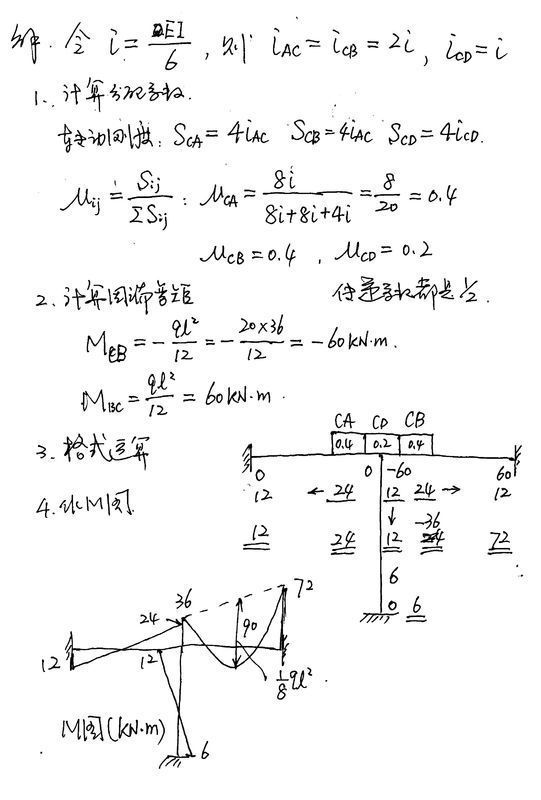 解. 令 i = EI/6 , 则 iAC = iCB = 2i , iCD = i
1. 计算分配系数.
转动刚度: SCA = 4iAC SCB = 4iAC SCD = 4iCD.
μij = Sij/ΣSij : μCA = 8i/(8i+8i+4i) = 8/20 = 0.4
μCB = 0.4 , μCD = 0.2
2. 计算固端弯矩 传递系数都是1/2.
MCB = -ql²/12 = -20×36/12 = -60kN·m.
MBC = ql²/12 = 60kN·m.
3. 格式运算
CA CD CB
0.4 0.2 0.4
0 0 -60 60
12 ← 24 12 24 → 12
↓
12 24 12 -36 72
6
0 6
4. 作M图.
36 72
24
90
12 12
1/8ql².
M图(kN·m)
6